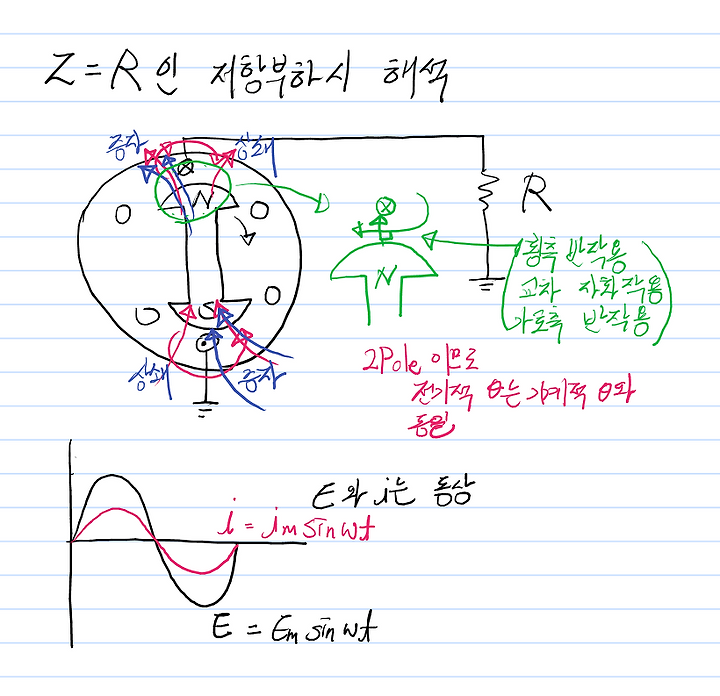 Z = R 인 저항부하시 해석
증자
상쇄
N
R
N
횡축 반작용
교차 자화작용
가로축 반작용
S
상쇄
증자
2Pole 이므로
전기적 θ는 기계적 θ와
동일
E와 i는 동상
i = im sin wt
E = Em sin wt